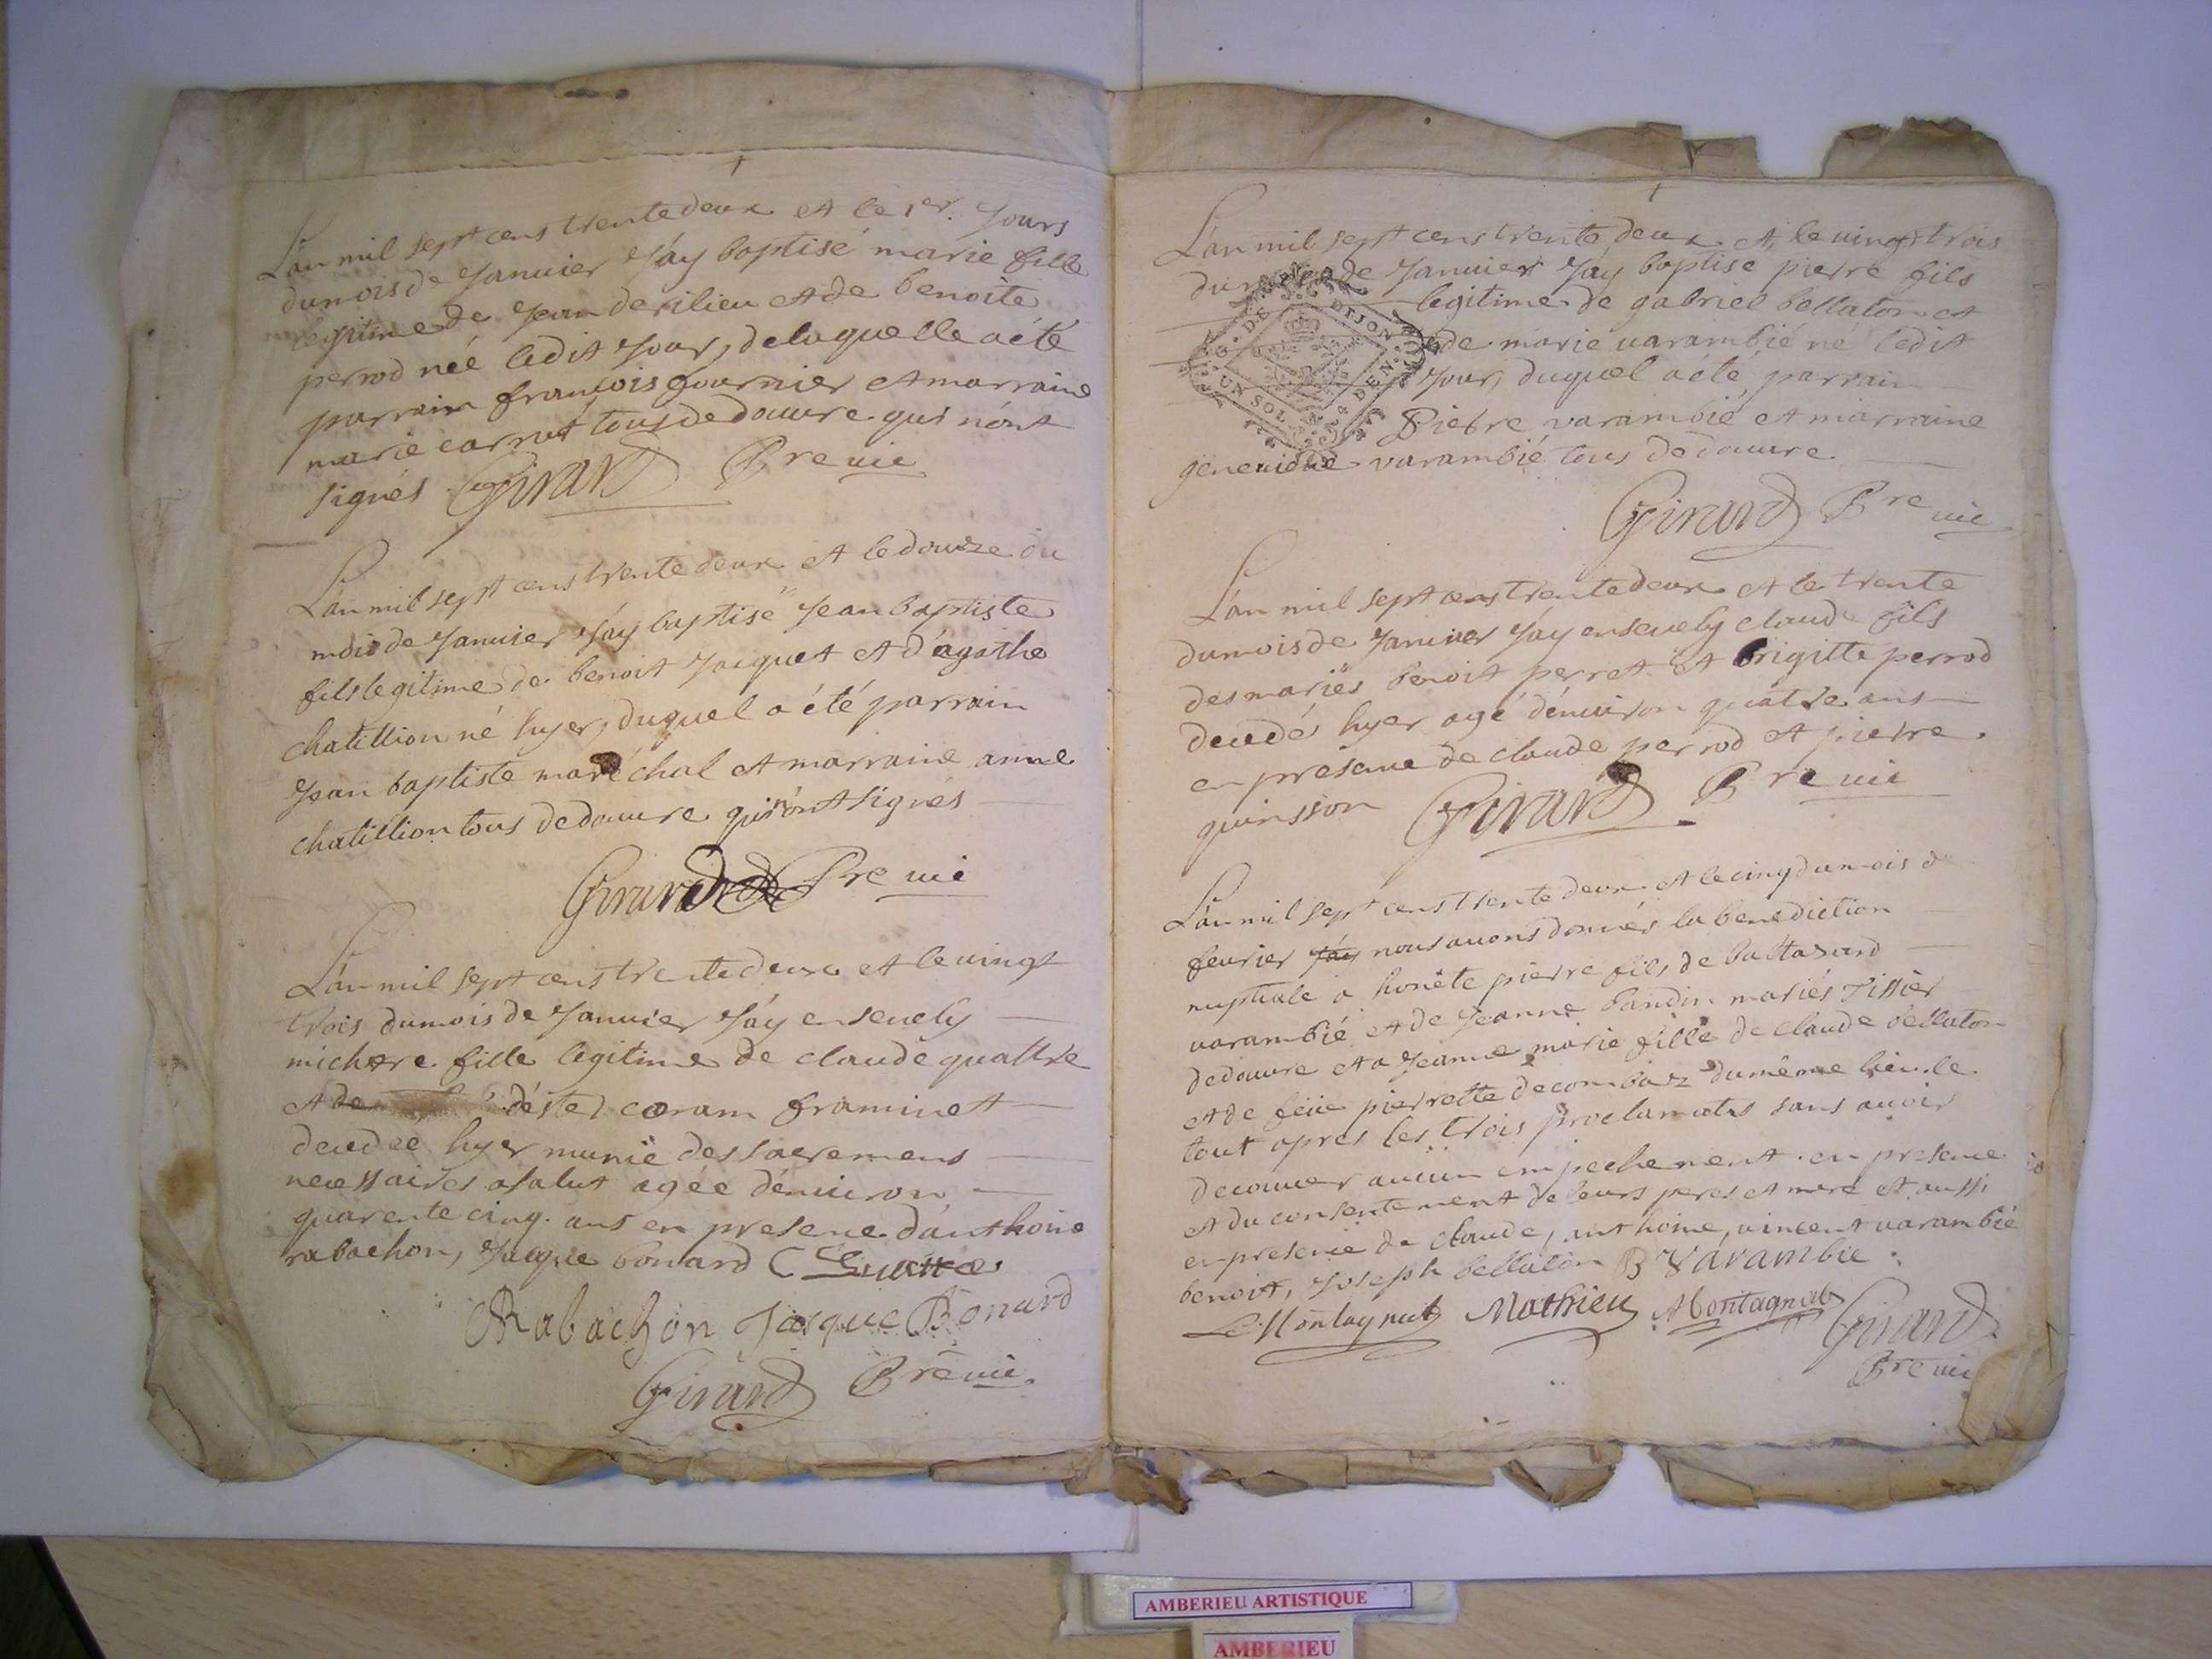 L'an mil sept cens trente deux et le 1er. Jours
du mois de Janvier J'ay baptisé marie fille
legitime de Jean derilieu et de benoite
perrod née ledit Jour, de laquelle a été
parrain francois fournier et marraine
marie carrut tous de douure qui n'ont
signés Girard Pre vic
L'an mil sept cens trente deux et le douze du
mois de Janvier J'ay baptisé Jean baptiste
fils legitime de benoit Jacquet et d'agathe
chatillion né hyer, duquel a été parrain
Jean baptiste maréchal et marraine anne
chatillion tous de douure qui n'ont signés
Girard Pre vic
L'an mil sept cens trente deux et le vingt
trois du mois de Janvier J'ay ensevely
fille legitime de claude quattre
et de caram framinet
decedee hyer munie des sacremens
necessaires a salut agée d'environ
quarente cinq ans en presence d'anthoine
rabachon, Jaque bonard
Rabachon Jacque Bonard
Girard Pre vic.
L'an mil sept cens trente deux et le vingt trois
du mois de Janvier J'ay baptise pierre fils
legitime de gabriel bellaton et
de marie varambié né ledit
Jour, duquel a été parrain
Pierre varambié et marraine
genevieve varambié tous de douure
G. DE DIJON
UN SOL 4 DEN.
Girard Pre vic
L'an mil sept cens trente deux et le trente
du mois de Janvier J'ay ensevely claude fils
des mariés benoit perret et brigitte perrod
decedés hyer agé d'environ quatre ans
en presence de claude perrod et pierre
quinsson Girard Pre vic
L'an mil sept cens trente deux et le cinq du mois d
fevrier J'ay nous avons donnés la benediction
nuptiale a honête pierre fils de baltazard
varambié et de Jeanne bandin mariés Tissier
de douure et a Jeanne marie fille de claude bellaton
et de feüe pierrette decombaz du même lieu le
tout apres les trois proclamats sans avoir
decouver aucun empechement en presence
et du consentement de leurs peres et mere et aussi
en presence de claude, anthoine, vincent varambié
benoit, Joseph bellaton B Varambie
C. Montagnat Mathieu A Montagnat Girard
Pre vic
AMBERIEU ARTISTIQUE
AMBERIEU